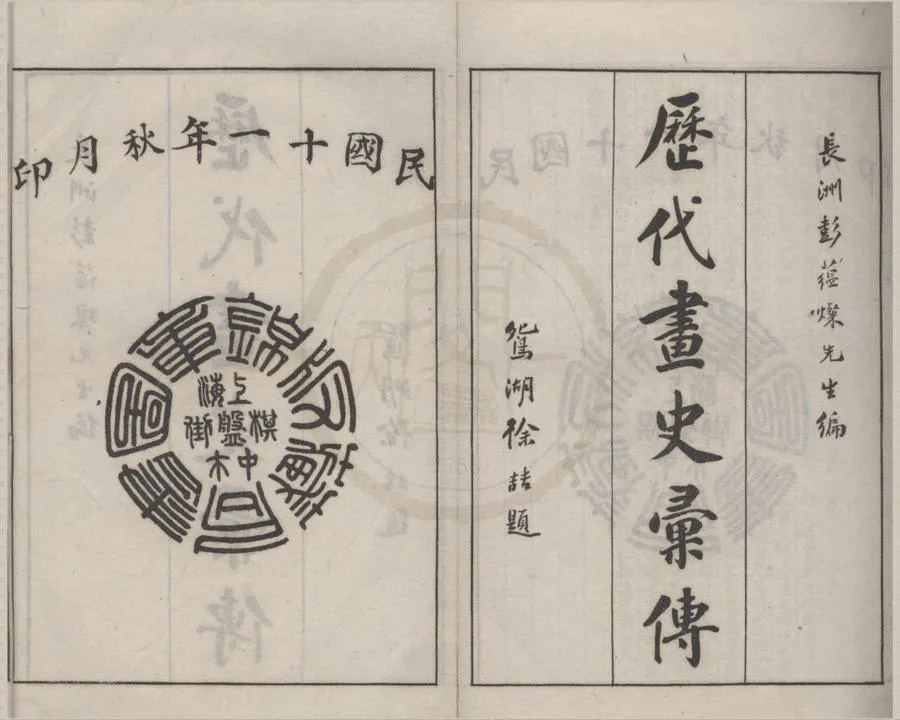 長洲彭蘊燦先生編
歷代畫史彙傳
鴛湖徐喆題
民國十一年秋月印
錦章圖書局藏版
上海棋盤街中市